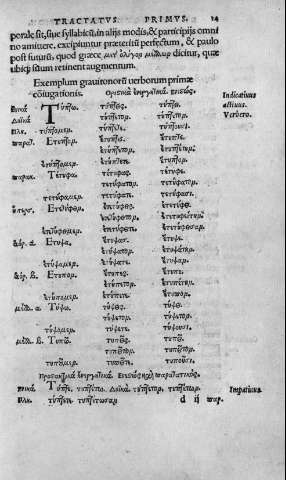 TRACTATVS PRIMVS. 14
porale sit, siue syllabicũ, in alijs modis, & participijs omni
no amittere, excipiuntur præteritũ perfectum, & paulo
post futurũ, quod græce μετ' ὀλίγον μέλλων dicitur, quæ
ubiq; suum retinent augmentum.
Exemplum grauitonorũ uerborum primæ
cõiugationis. Indicatiuus
actiuus.
Verbero.
ἑνικὰ Τύπτω. τύπτεις. τύπτει.
Δυϊκὰ τύπτετον. τύπτετον.
πλη. τύπτομεν. τύπτετε. τύπτουσι.
παρατ. Ἔτυπτον. ἔτυπτες. ἔτυπτε.
ἐτύπτετον. ἐτυπτέτην.
ἐτύπτομεν. ἐτύπτετε. ἔτυπτον.
παρακ. Τέτυφα. τέτυφας. τέτυφε.
τετύφατον. τετύφατον.
τετύφαμεν. τετύφατε. τετύφασι.
ὑπερσ. Ἐτετύφειν. ἐτετύφεις. ἐτετύφει.
ἐτετύφειτον. ἐτετυφείτην.
ἐτετύφειμεν. ἐτετύφειτε. ἐτετύφεισαν.
ἀόρ. α. Ἔτυψα. ἔτυψας. ἔτυψε.
ἐτύψατον. ἐτυψάτην.
ἐτύψαμεν. ἐτύψατε. ἔτυψαν.
ἀόρ. β. Ἔτυπον. ἔτυπες. ἔτυπε.
ἐτύπετον. ἐτυπέτην.
ἐτύπομεν. ἐτύπετε. ἔτυπον.
μέλ. α. Τύψω. τύψεις. τύψει.
τύψετον. τύψετον.
τύψομεν. τύψετε. τύψουσι.
μέλ. β. Τυπῶ. τυπεῖς. τυπεῖ.
τυπεῖτον. τυπεῖτον.
τυποῦμεν. τυπεῖτε. τυποῦσι.
ἑνικὰ Τύπτε. τυπτέτω. Δυϊκὰ. τύπτετον. τυπτέτων. Imperatiuus.
πλη. τύπτετε. τυπτέτωσαν. d ij παρ.